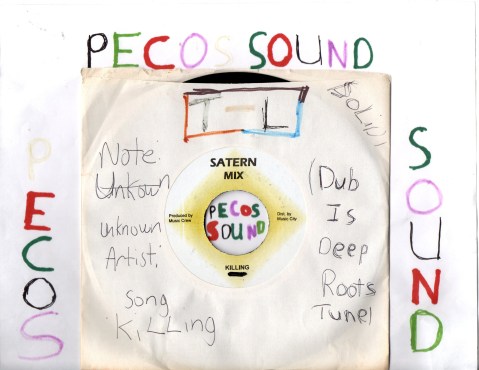 PECOS SOUND
T-L
PECOS
Note:
Unkown
unknown
Artist;
Song
KiLLing
SATERN
MIX
Produced by
Dist. by
Music City
PECOS
SOUND
KILLING
(Dub
Is
Deep
Roots
Tune!
SOUND